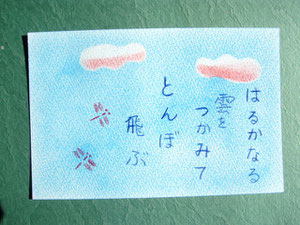 はるかなる
雲を
つかみて
とんぼ
飛ぶ